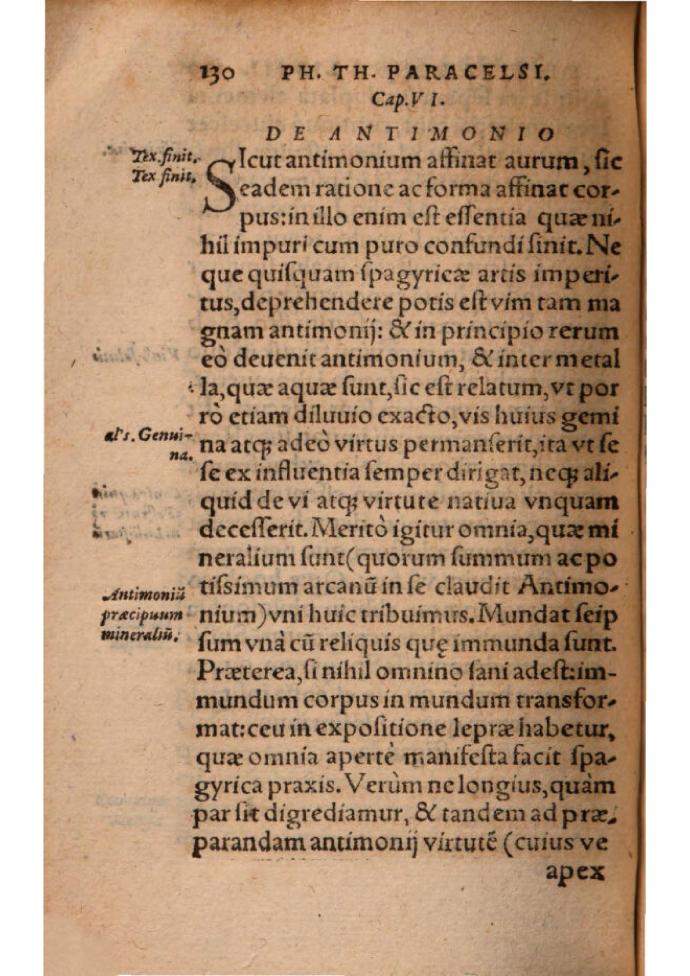 130 PH. TH. PARACELSI.
Cap. VI.
DE ANTIMONIO
Tex. finit.
Tex finit.
SIcut antimonium affinat aurum, sic
eadem ratione ac forma affinat cor-
pus: in illo enim est essentia quæ ni-
hil impuri cum puro confundi sinit. Ne
que quisquam spagyricæ artis imperi-
tus, deprehendere potis est vim tam ma
gnam antimonij: & in principio rerum
eò deuenit antimonium, & inter metal
la, quæ aquæ sunt, sic est relatum, vt por
rò etiam diluuio exacto, vis huius gemi
al's. Genui-
na.
na atq; adeò virtus permanserit, ita vt se
se ex influentia semper dirigat, neq; ali-
quid de vi atq; virtute natiua vnquam
decesserit. Meritò igitur omnia, quæ mi
neralium sunt (quorum summum ac po
tissimum arcanũ in se claudit Antimo-
Antimoniũ
præcipuum
mineraliũ.
nium) vni huic tribuimus. Mundat seip
sum vnà cũ reliquis quę immunda sunt.
Præterea, si nihil omnino sani adest: im-
mundum corpus in mundum transfor-
mat: ceu in expositione lepræ habetur,
quæ omnia apertè manifesta facit spa-
gyrica praxis. Verùm ne longius, quàm
par sit digrediamur, & tandem ad præ-
parandam antimonij virtutẽ (cuius ve
apex